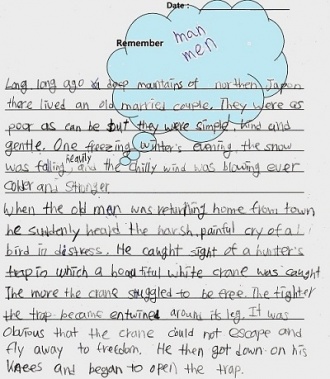 Date :
Remember
man
men
Long long ago in deep mountains of northern Japan
there lived an old married couple. They were as
poor as can be but they were simple, kind and
gentle. One freezing winter's evening the snow
was falling heavily and the chilly wind was blowing ever
colder and Stronger
when the old man was returning home from town
he suddenly heard the harsh, painful cry of a
bird in distress. He caught sight of a hunter's
trap in which a beautiful white crane was caught
The more the crane struggled to be free. The tighter
the trap became entwined around its leg. It was
obvious that the crane could not escape and
fly away to freedom. He then got down on his
knees and began to open the trap.